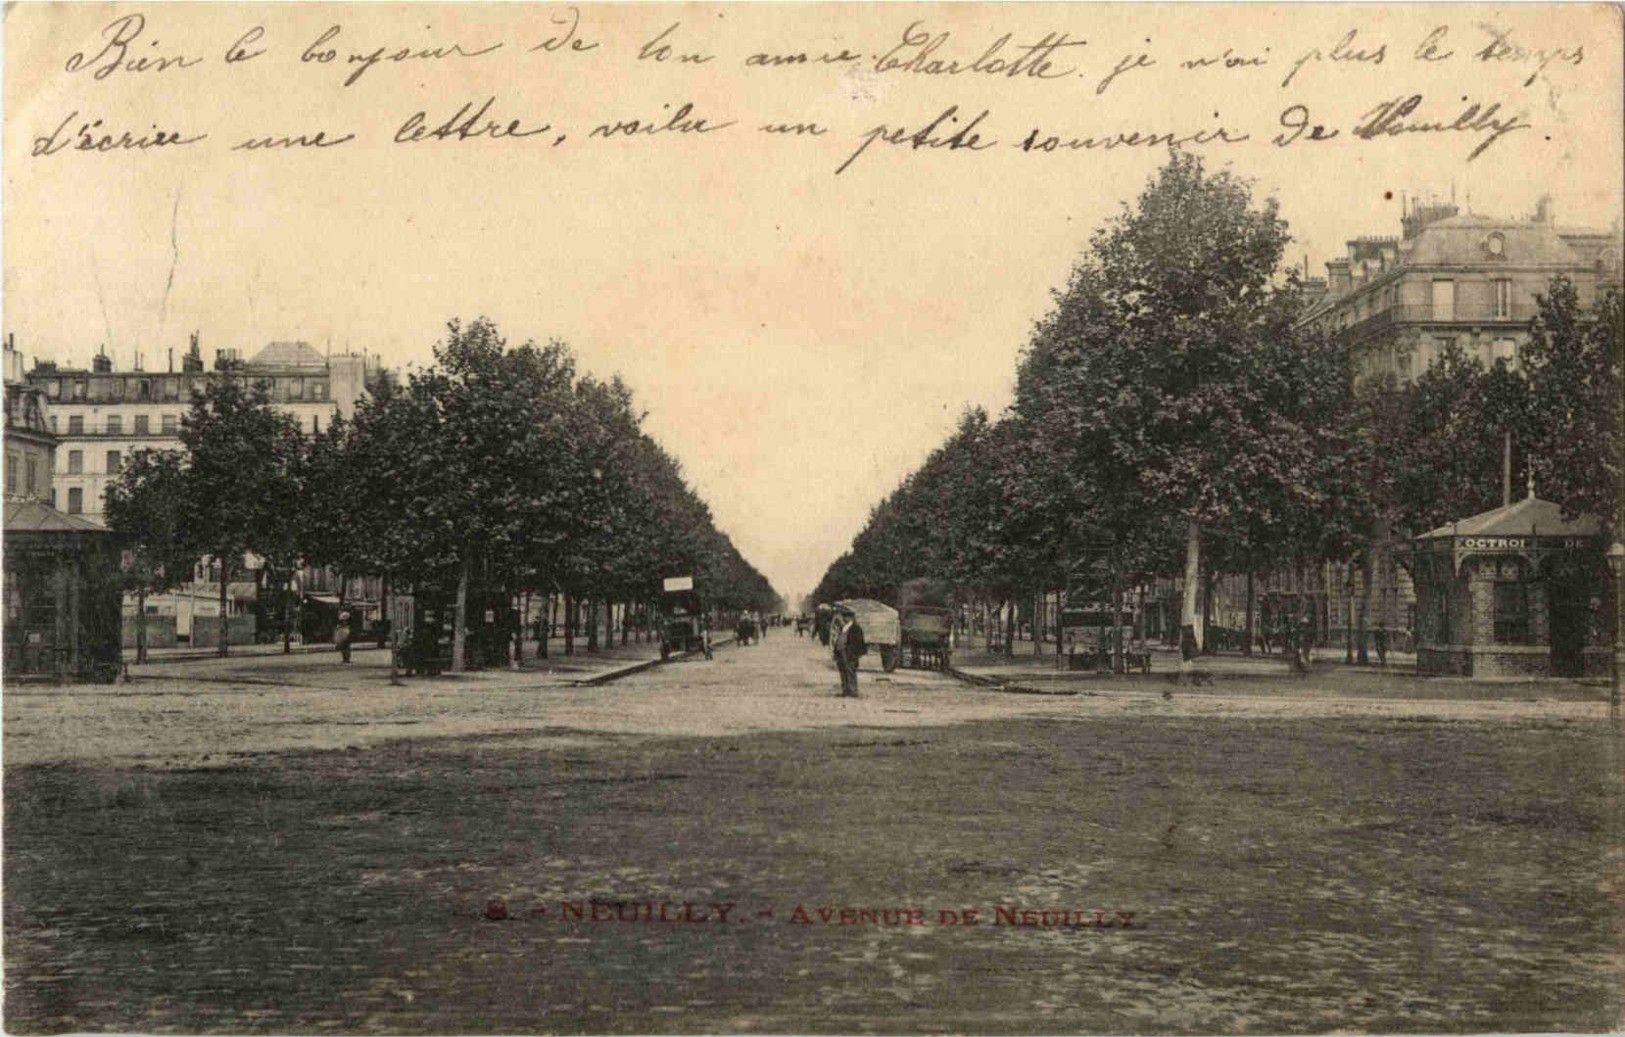 Bien le bonjour de ton amie Charlotte. je n'ai plus le temps
d'écrire une lettre, voila un petite souvenir de Neuilly.
OCTROI DE
8. - NEUILLY. - AVENUE DE NEUILLY